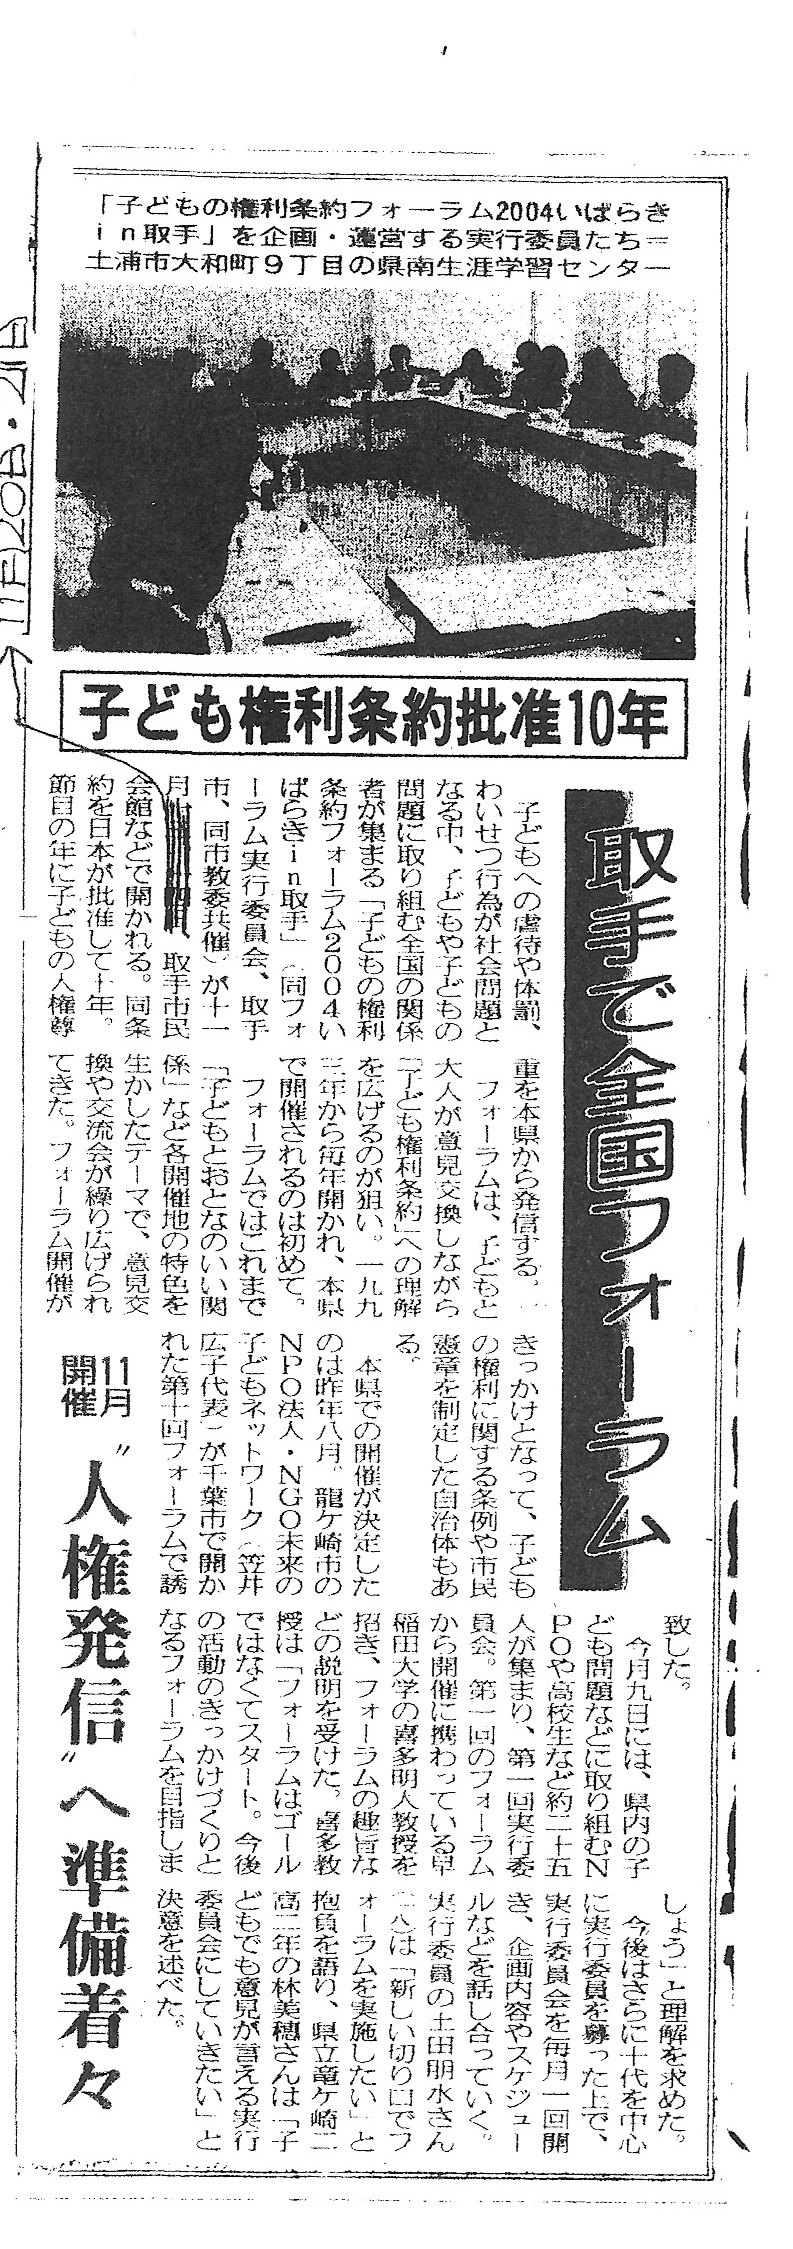 「子どもの権利条約フォーラム2004いばらき
in取手」を企画・運営する実行委員たち＝
土浦市大和町9丁目の県南生涯学習センター
11月20日・21日
子ども権利条約批准10年
取手で全国フォーラム
11月
開催
〝人権発信〟へ準備着々
子どもへの虐待や体罰、
わいせつ行為が社会問題と
なる中、子どもや子どもの
問題に取り組む全国の関係
者が集まる「子どもの権利
条約フォーラム2004い
ばらきin取手」（同フォ
ーラム実行委員会、取手
市、同市教委共催）が十一
月、取手市民
会館などで開かれる。同条
約を日本が批准して十年。
節目の年に子どもの人権尊
重を本県から発信する。
フォーラムは、子どもと
大人が意見交換しながら
「子ども権利条約」への理解
を広げるのが狙い。一九九
三年から毎年開かれ、本県
で開催されるのは初めて。
フォーラムではこれまで
「子どもとおとなのいい関
係」など各開催地の特色を
生かしたテーマで、意見交
換や交流会が繰り広げられ
てきた。フォーラム開催が
きっかけとなって、子ども
の権利に関する条例や市民
憲章を制定した自治体もあ
る。
本県での開催が決定した
のは昨年八月。龍ケ崎市の
NPO法人・NGO未来の
子どもネットワーク（笠井
広子代表）が千葉市で開か
れた第十回フォーラムで誘
致した。
今月九日には、県内の子
ども問題などに取り組むN
POや高校生など約二十五
人が集まり、第一回実行委
員会。第一回のフォーラム
から開催に携わっている早
稲田大学の喜多明人教授を
招き、フォーラムの趣旨な
どの説明を受けた。喜多教
授は「フォーラムはゴール
ではなくてスタート。今後
の活動のきっかけづくりと
なるフォーラムを目指しま
しょう」と理解を求めた。
今後はさらに十代を中心
に実行委員を募った上で、
実行委員会を毎月一回開
き、企画内容やスケジュー
ルなどを話し合っていく。
実行委員の土田明水さん
は「新しい切り口でフ
ォーラムを実施したい」と
抱負を語り、県立竜ケ崎二
高二年の林美穂さんは「子
どもでも意見が言える実行
委員会にしていきたい」と
決意を述べた。